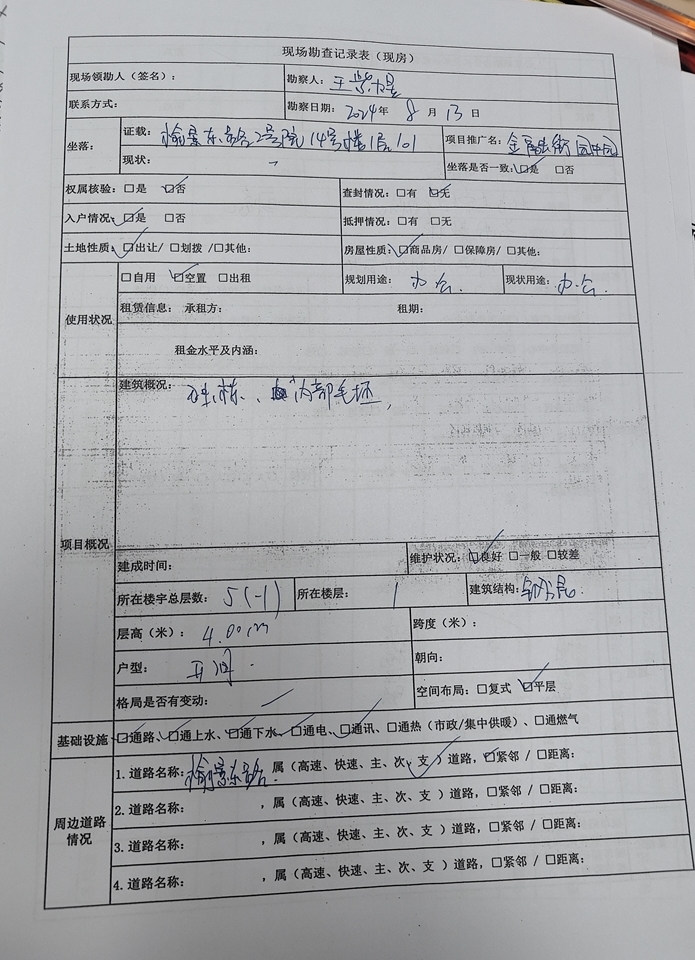 现场勘查记录表（现房）
现场领勘人（签名）： 勘察人：
联系方式： 勘察日期：2024年 8 月 13 日
坐落： 证载：榆景东路2号院14号楼1层101 项目推广名：金融街园中园
现状：— 坐落是否一致：☑是 □否
权属核验：□是 ☑否 查封情况：□有 ☑无
入户情况：☑是 □否 抵押情况：□有 □无
土地性质：☑出让/ □划拨 /□其他： 房屋性质：☑商品房/ □保障房/ □其他：
使用状况 □自用 ☑空置 □出租 规划用途：办公. 现状用途：办公.
租赁信息： 承租方： 租期：
租金水平及内涵：
项目概况 建筑概况：独栋、内部毛坯,
建成时间： 维护状况：☑良好 □一般 □较差
所在楼宇总层数：5(-1) 所在楼层：1 建筑结构：钢混
层高（米）：4.00m 跨度（米）：
户型：开间. 朝向：
格局是否有变动：— 空间布局：□复式 ☑平层
基础设施 ☑通路、☑通上水、☑通下水、☑通电、☑通讯、□通热（市政/集中供暖）、□通燃气
周边道路情况 1. 道路名称：榆景东路，属（高速、快速、主、次、支✓）道路，☑紧邻 / □距离：
2. 道路名称： ，属（高速、快速、主、次、支 ）道路，□紧邻 / □距离：
3. 道路名称： ，属（高速、快速、主、次、支 ）道路，□紧邻 / □距离：
4. 道路名称： ，属（高速、快速、主、次、支 ）道路，□紧邻 / □距离：